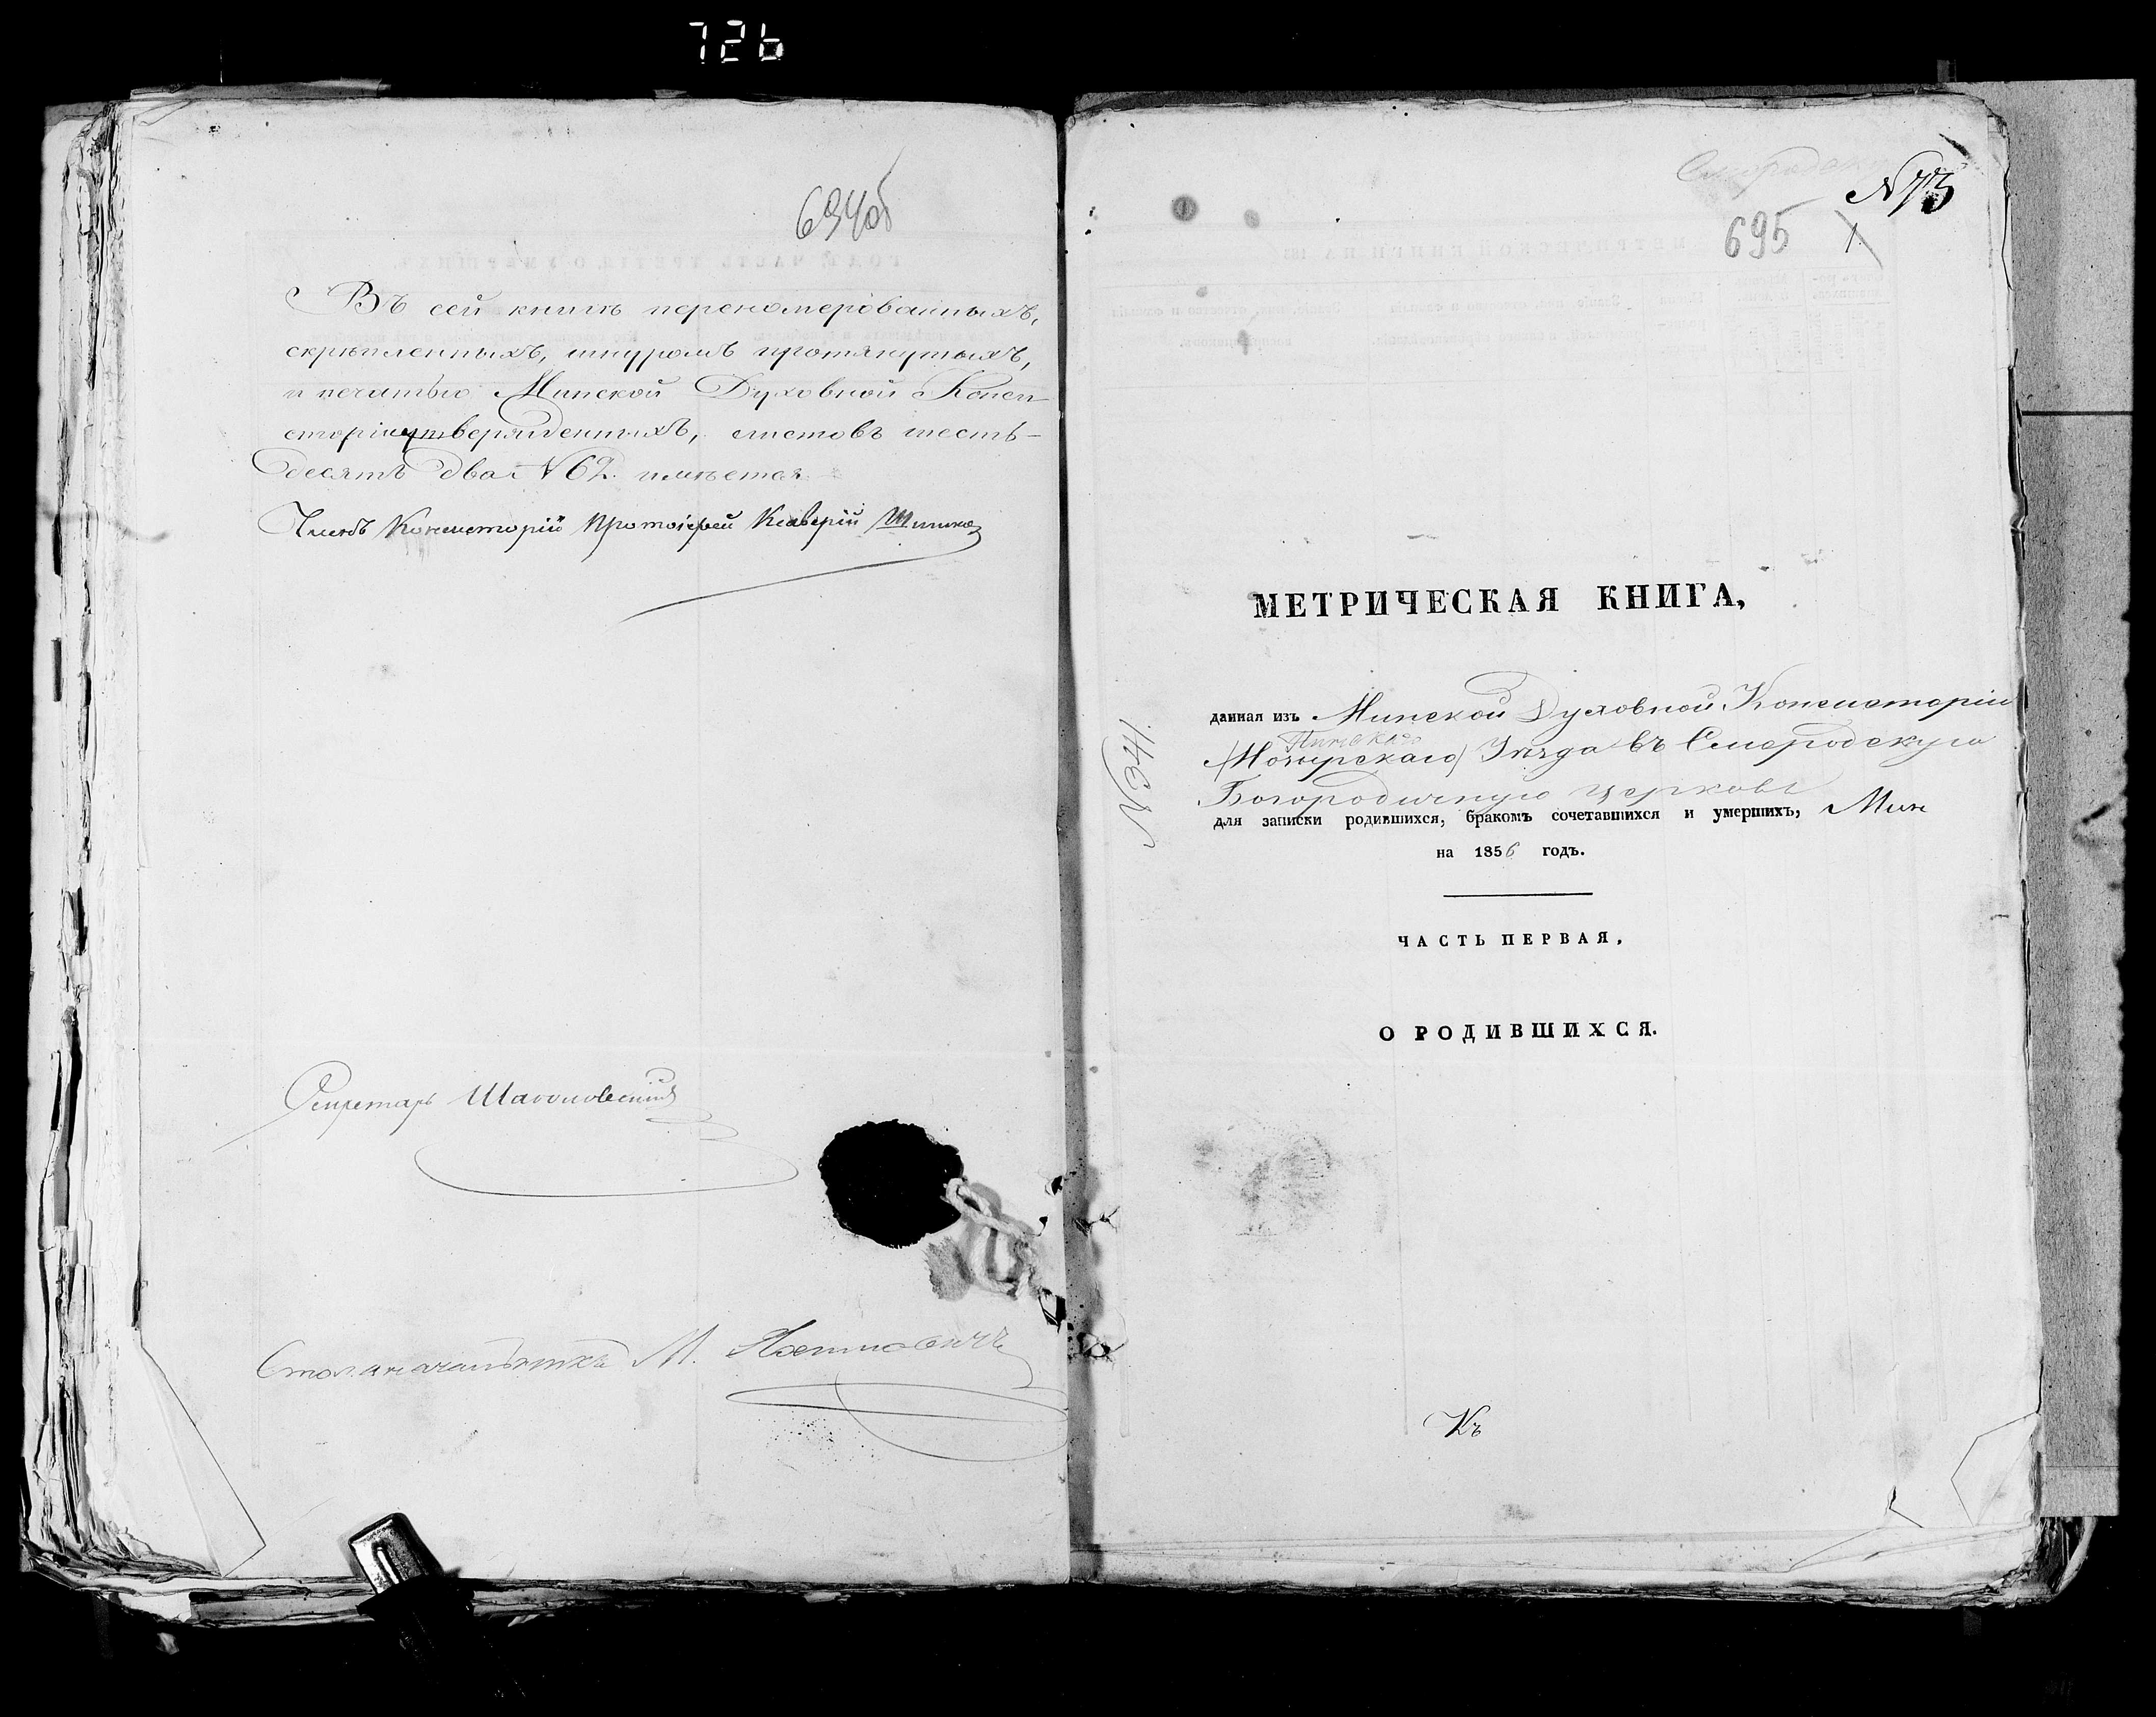 726
694об
Въ сей книгѣ переномерованныхъ,
скрѣпленныхъ, шнуромъ протянутыхъ,
и печатью Минской Духовной Консис
торіи утвержденныхъ, листовъ шесть-
десятъ два № 62. имѣется
Членъ Консисторіи Протоіерей Ксаверій
Секретарь
Столоначальникъ М.
№73
695 1.
МЕТРИЧЕСКАЯ КНИГА,
данная изъ Минской Духовной Консисторіи
Пинскаго
(Мозырскаго) Уѣзда въ Смеродскую
Богородичную церковь
для записки родившихся, бракомъ сочетавшихся и умершихъ, Мин
на 1856 годъ.
ЧАСТЬ ПЕРВАЯ,
О РОДИВШИХСЯ.
Къ